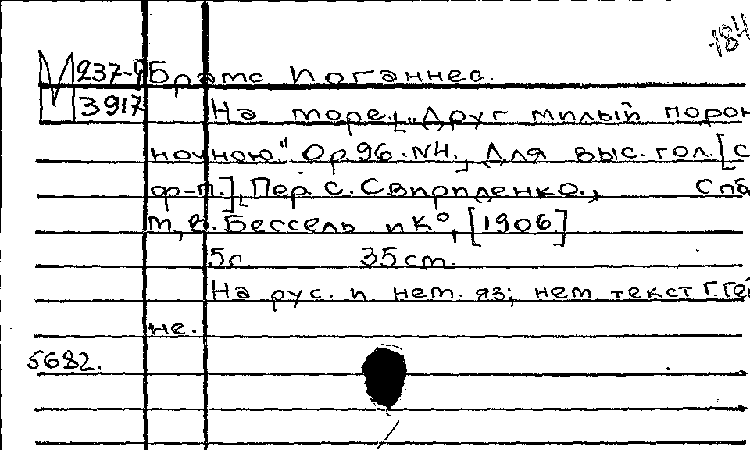 184
М 237-9 Брамс Иоганнес.
3917 На море. „Друг милый порою
ночною" Op 96. N4. Для выс. гол. [с
ф-п.] Пер. С. Свириденко., Спб
т, В. Бессель и К°, [1906]
5с 35 ст.
На рус. и нем. яз; нем текст Г. Гей
не.
5682.